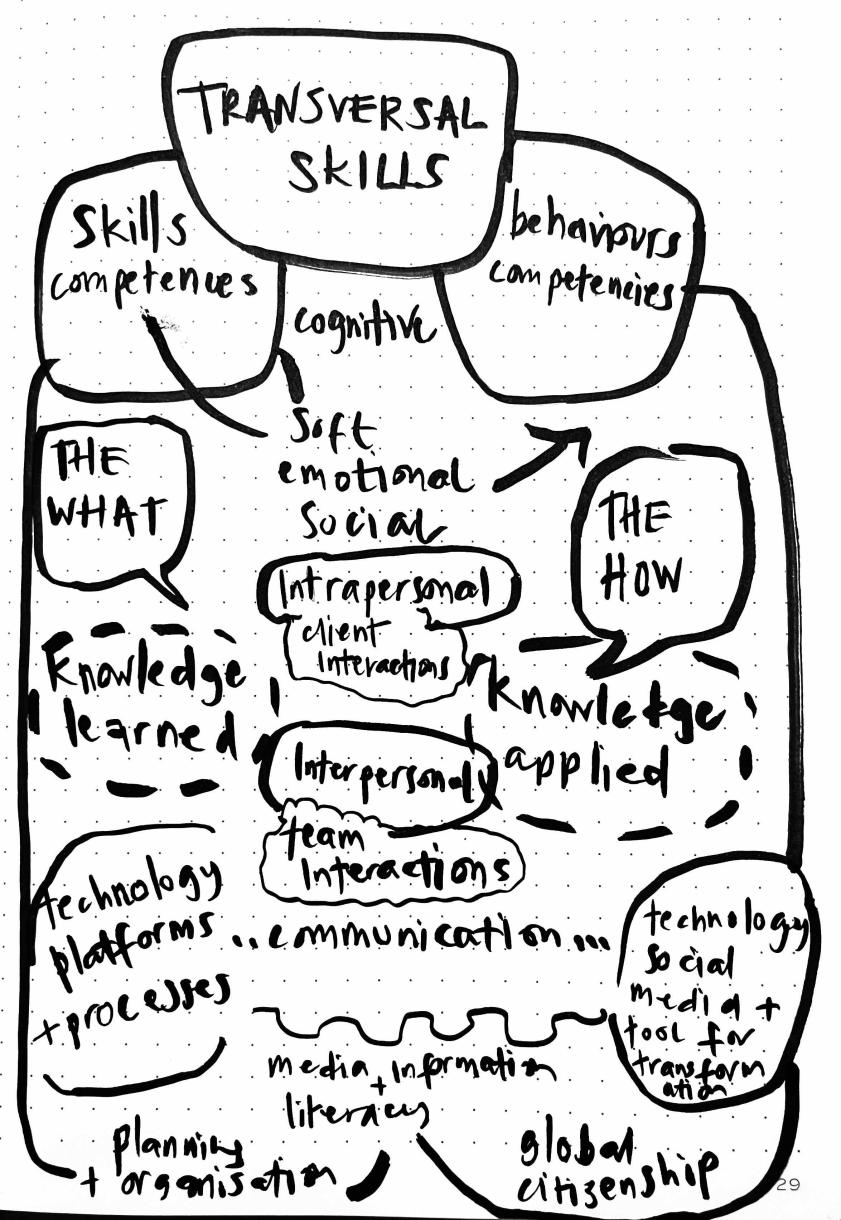 TRANSVERSAL
SKILLS
Skills
competences
behaviours
competencies
cognitive
Soft
emotional
Social
THE
WHAT
THE
HOW
Intrapersonal
client
Interactions
Knowledge
learned
Knowledge
applied
Interpersonal
team
Interactions
technology
platforms
+ processes
..communication...
technology
social
media +
tool for
transform
ation
media + information
literacy
planning
+ organisation
global
citizenship
29